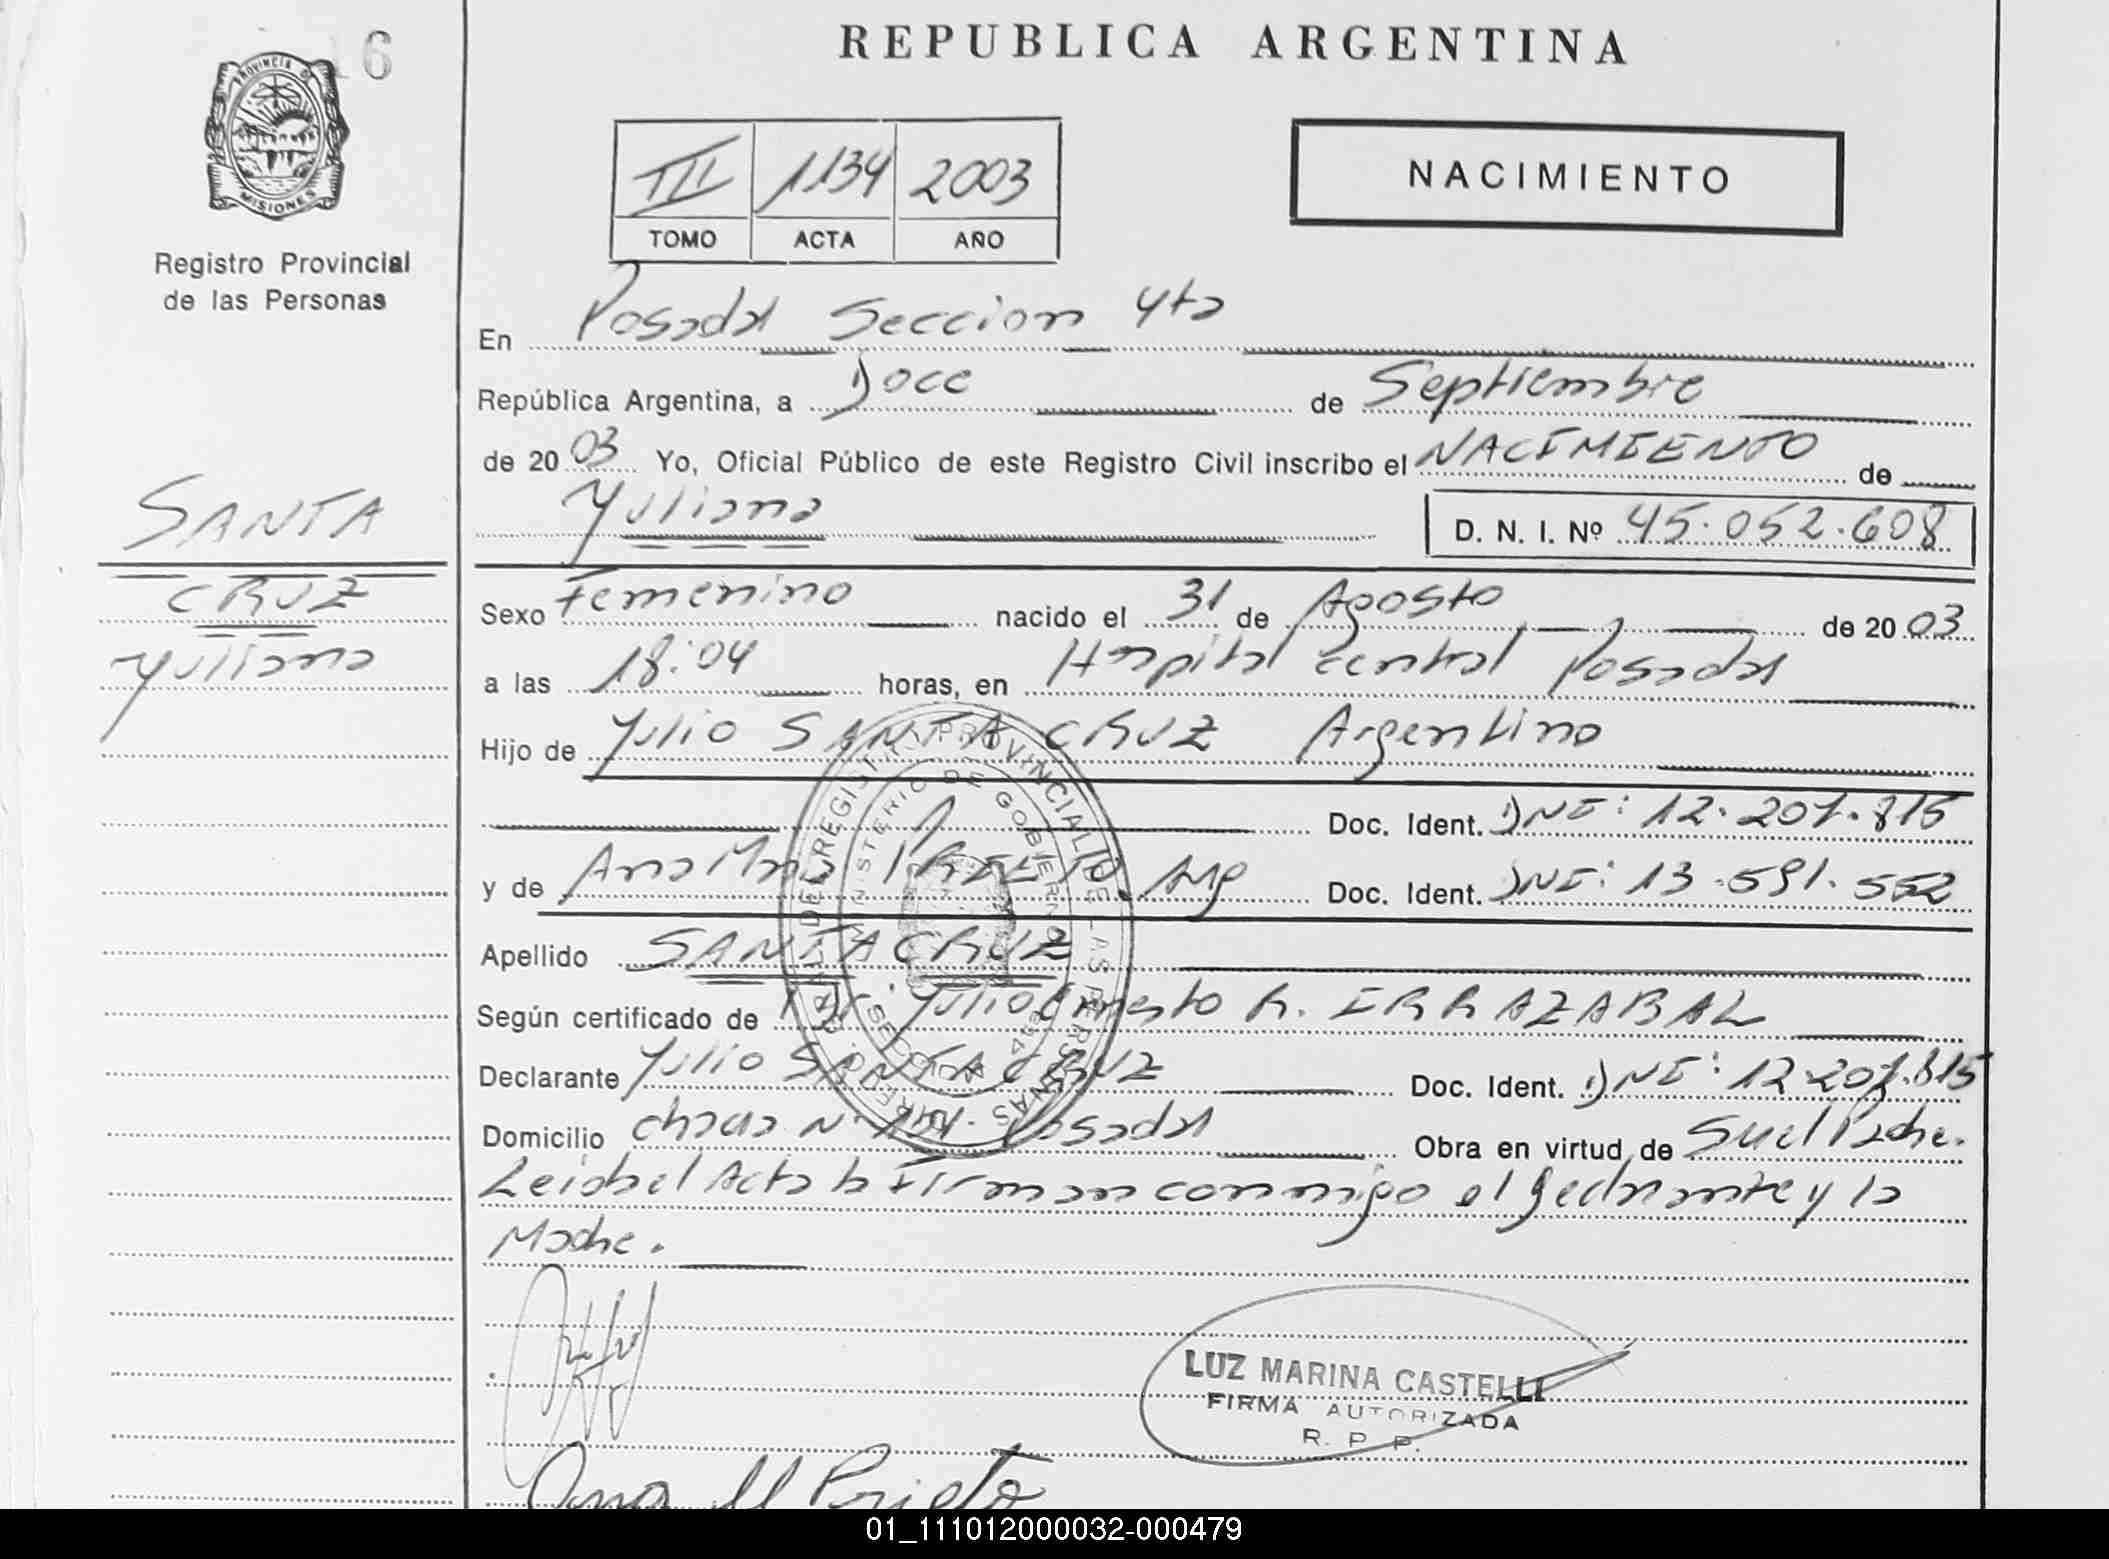 16
PROVINCIA DE
MISIONES
Registro Provincial
de las Personas
SANTA
CRUZ
Yuliana
REPUBLICA ARGENTINA
III 1134 2003
TOMO ACTA AÑO
NACIMIENTO
En Posadas Seccion 4ta
República Argentina, a Doce de Septiembre
de 2003 Yo, Oficial Público de este Registro Civil inscribo el NACIMIENTO de
Yuliana D. N. I. Nº 45.052.608
Sexo Femenino nacido el 31 de Agosto de 2003
a las 18:04 horas, en Hospital central Posadas
Hijo de Julio SANTA CRUZ Argentino
Doc. Ident. DNI: 12.207.815
y de Ana María PRIETO. Arg Doc. Ident. DNI: 13.591.552
Apellido SANTA CRUZ
Según certificado de Dr. Julio Ernesto R. IRRAZABAL
Declarante Julio SANTA CRUZ Doc. Ident. DNI: 12.207.815
Domicilio chacra N. Posadas Obra en virtud de Su el Padre.
Leida el Acta la Firman conmigo el declarante y la
Madre.
REGISTRO PROVINCIAL DE LAS PERSONAS
MINISTERIO DE GOBIERNO
LUZ MARINA CASTELLI
FIRMA AUTORIZADA
R. P. P.
Ana M Prieto
01_111012000032-000479